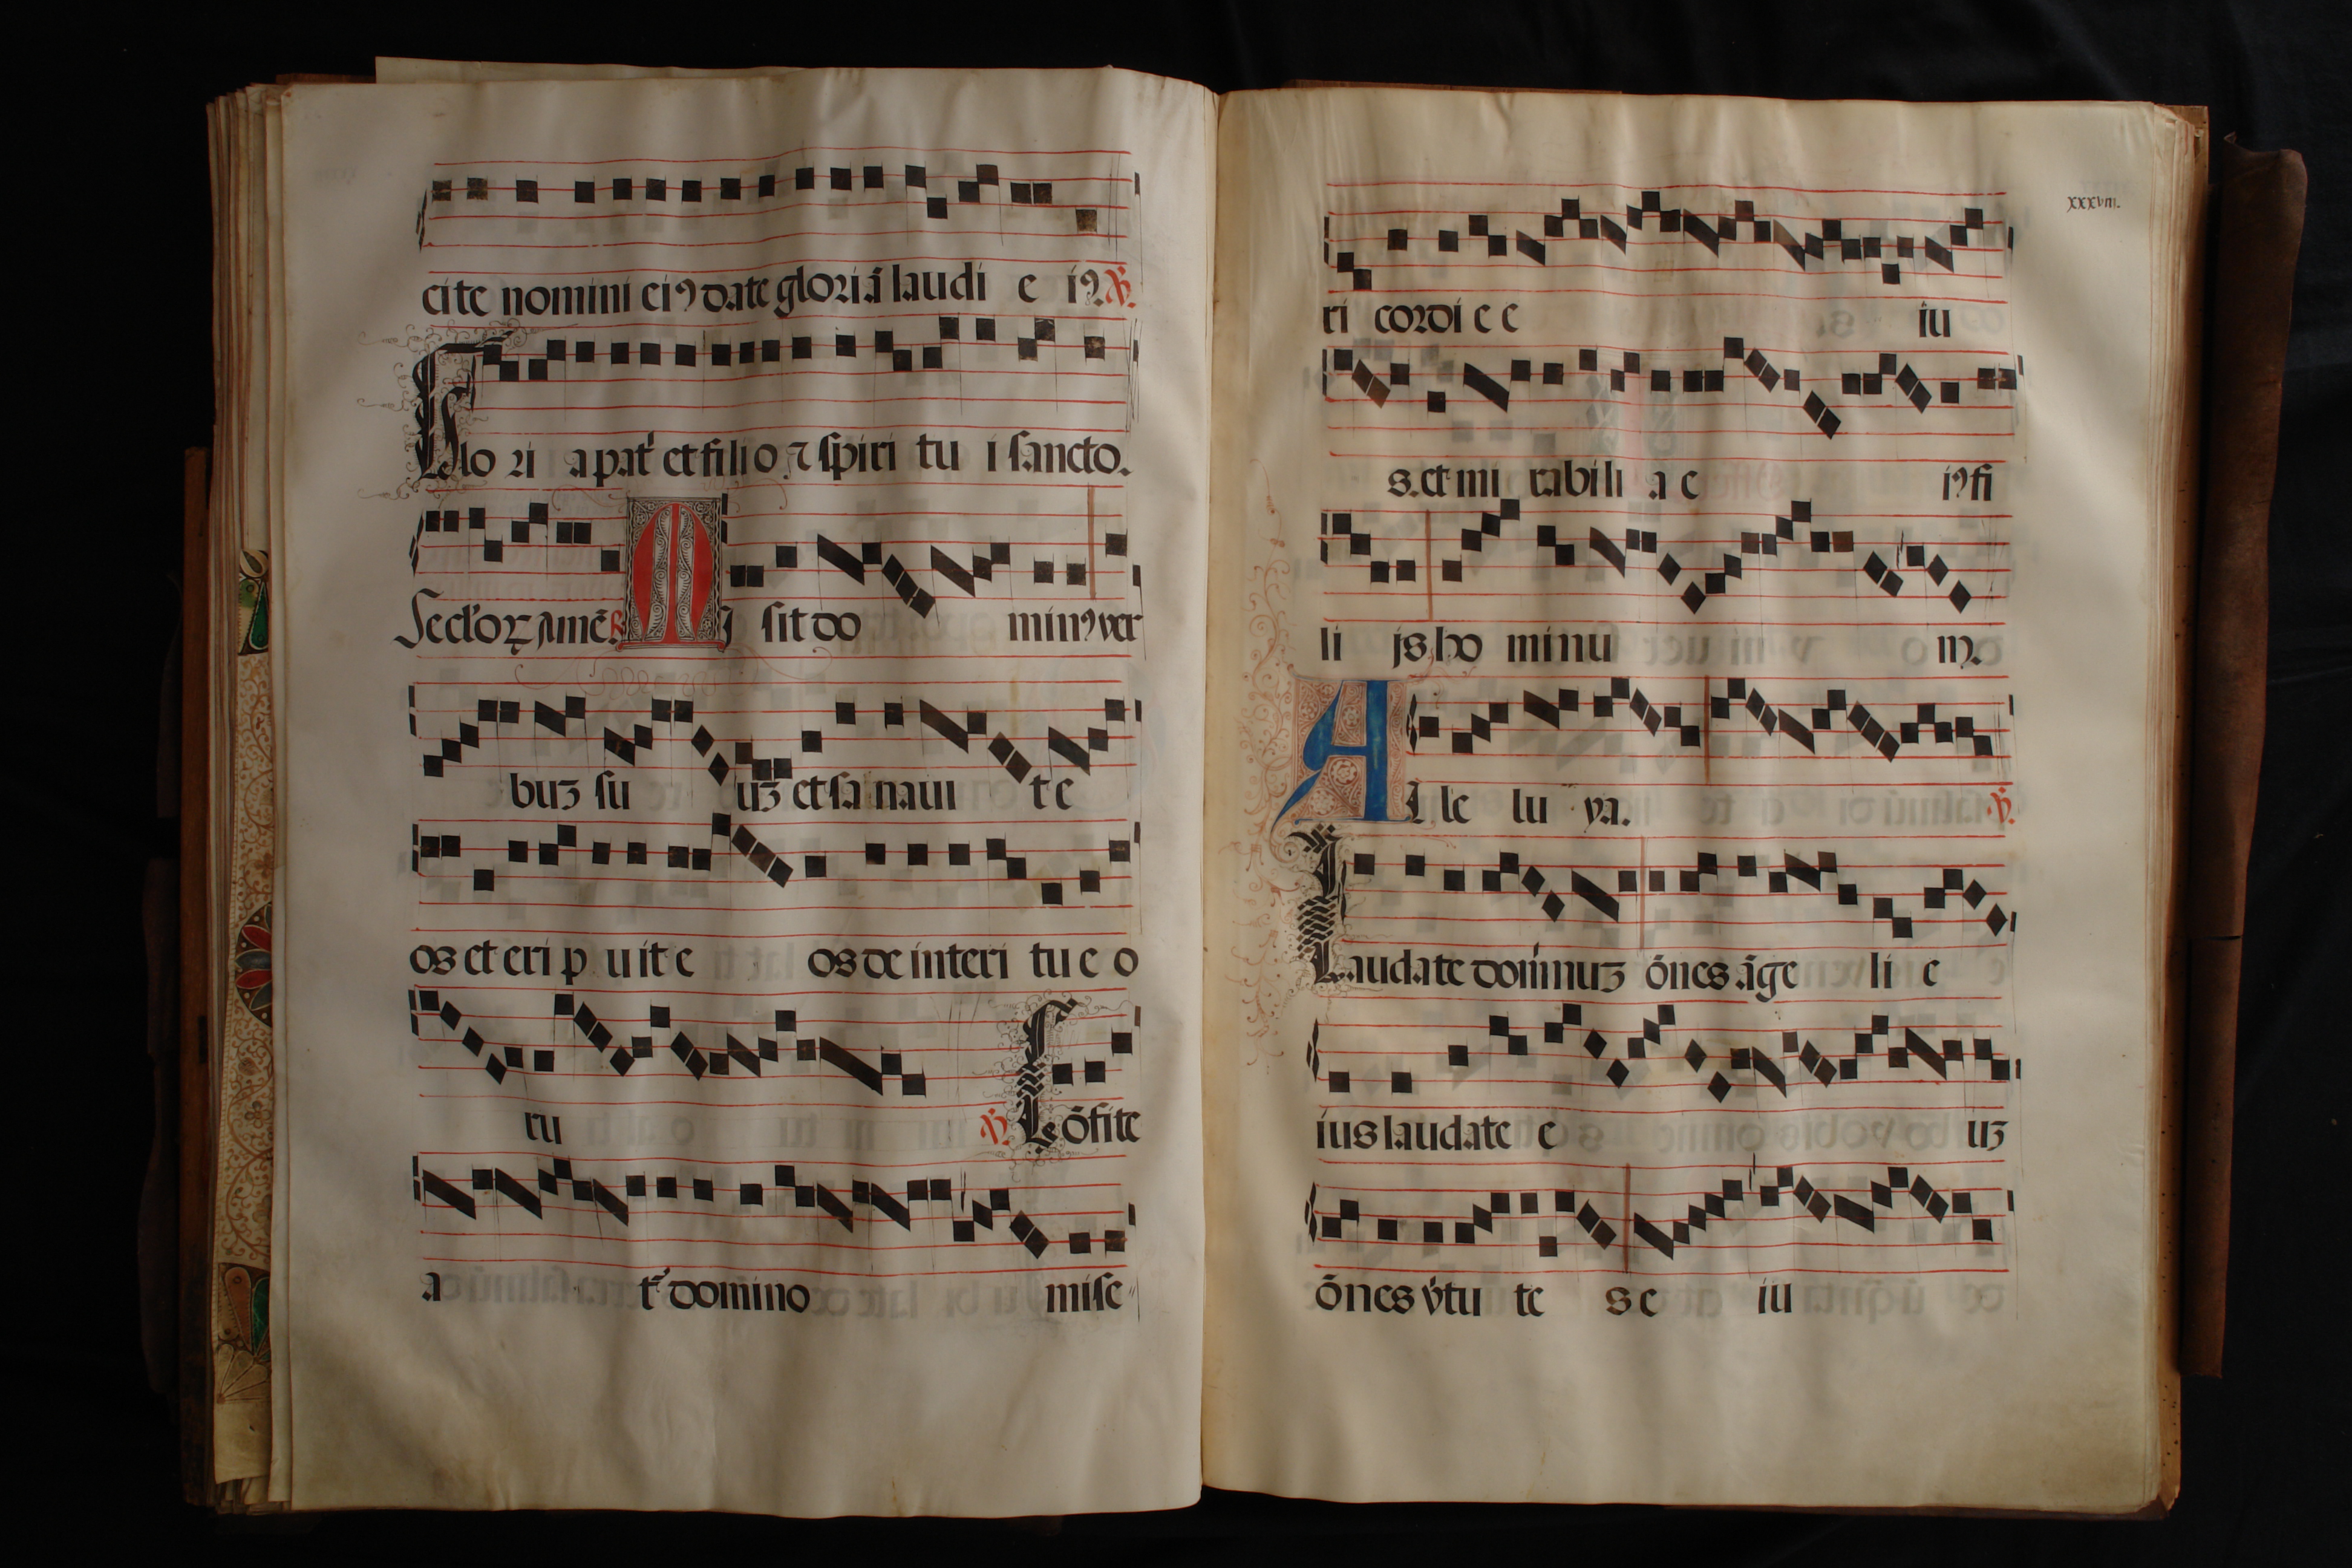 cite nomini eiꝯ date gloriā laudi e iꝯ. ℣.
Glo ri a pat̉ et filio ⁊ spiri tu i sancto.
Seclorꝝ amē R̷ Mi sit do minꝯ ver
buʒ su uʒ et sa naui t e
os et eri p uit e os de interi tu e o
ru ℣. Cōfite
a t̉ domino mise
xxxviij.
ri cordi e e iu
s. et mi rabili a e iꝯ fi
li js ho minu m.
Alle lu ya. ℣.
Laudate dominuʒ ōnes āge li e
ius laudate e uʒ
ōnes v̉tu te s e iu